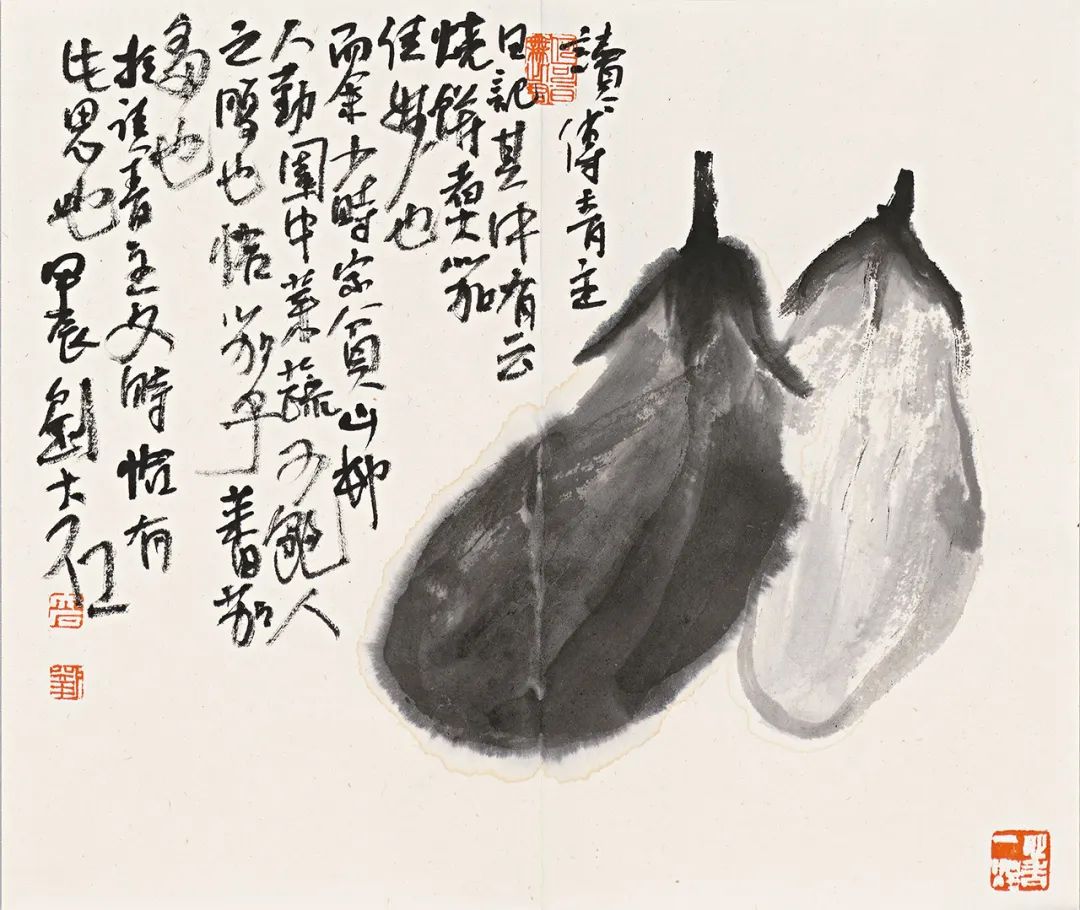 讀傅青主
日記其中有云
燒餅煮茄
佳妙也
而余少時家貧山鄉
人勤園中菜蔬可飽人
之腸也茄子
也
讀青主文時恰有
此思也甲辰劉大